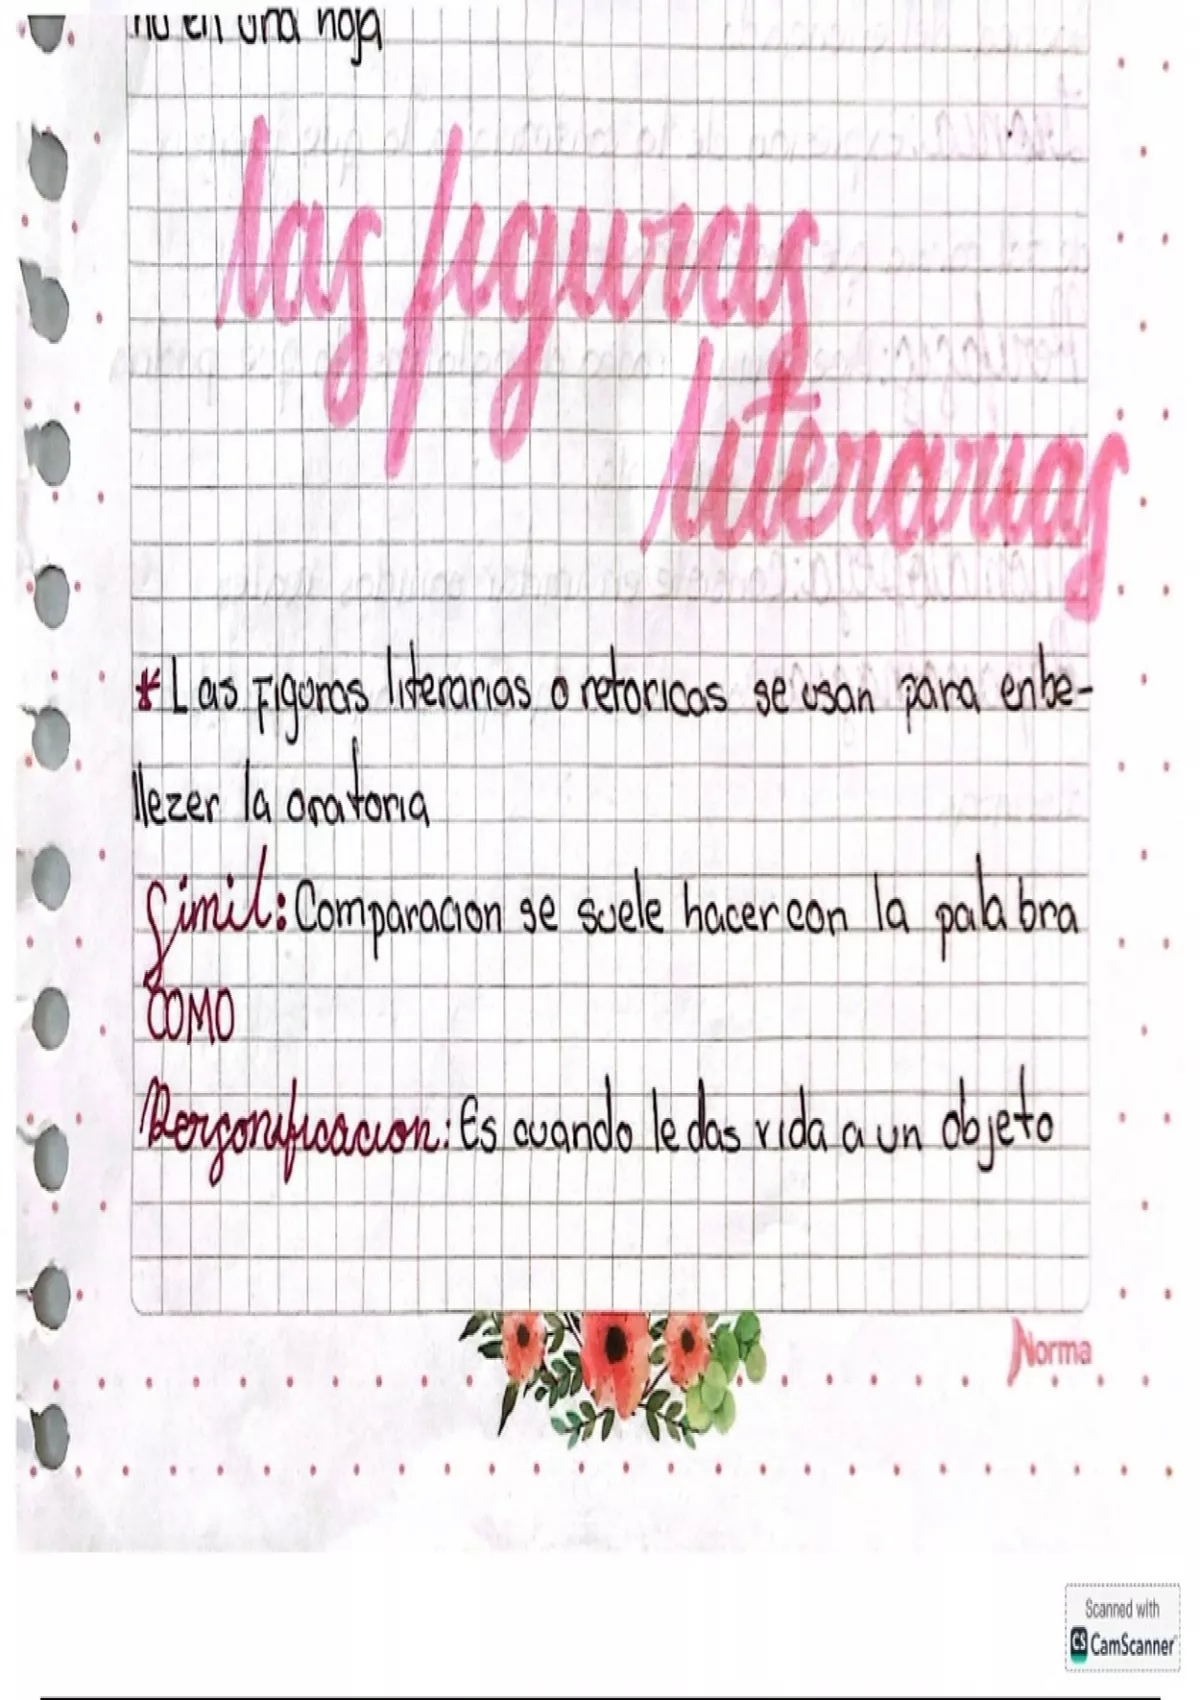 no en una hoja
las figuras
literarias
* Las Figuras literarias o retoricas se usan para enbe-
llezer la oratoria
Simil: Comparacion se suele hacer con la palabra
COMO
Personificacion: Es cuando le das vida a un objeto
Norma
Scanned with
CS CamScanner